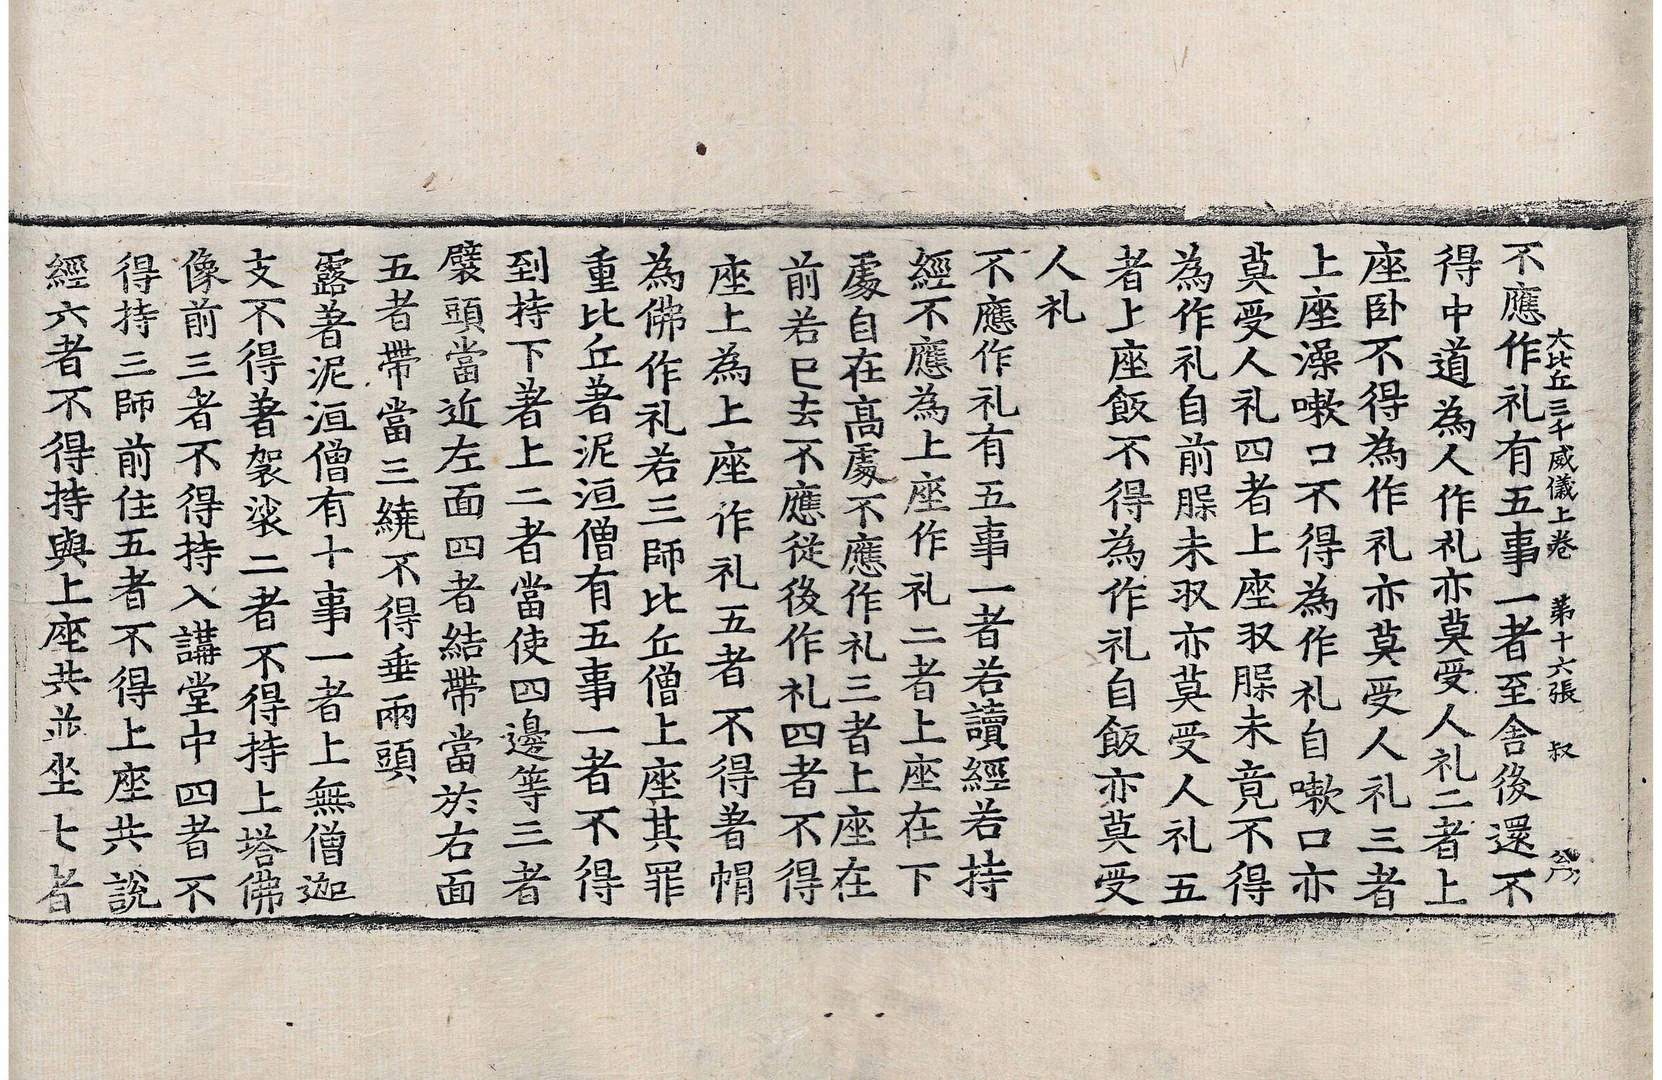 大比丘三千威儀上卷　第十六張　叔
不應作礼有五事一者至舍後還不
得中道為人作礼亦莫受人礼二者上
座卧不得為作礼亦莫受人礼三者
上座澡嗽口不得為作礼自嗽口亦
莫受人礼四者上座㕞脲未竟不得
為作礼自前脲未㕞亦莫受人礼五
者上座飯不得為作礼自飯亦莫受
人礼
不應作礼有五事一者若讀經若持
經不應為上座作礼二者上座在下
處自在高處不應作礼三者上座在
前若已去不應從後作礼四者不得
座上為上座作礼五者不得著帽
為佛作礼若三師比丘僧上座其罪
重比丘著泥洹僧有五事一者不得
到持下著上二者當使四邊等三者
襞頭當近左面四者結帶當於右面
五者帶當三繞不得垂兩頭
露著泥洹僧有十事一者上無僧迦
支不得著袈裟二者不得持上塔佛
像前三者不得持入講堂中四者不
得持三師前住五者不得上座共說
經六者不得持與上座共並坐七者